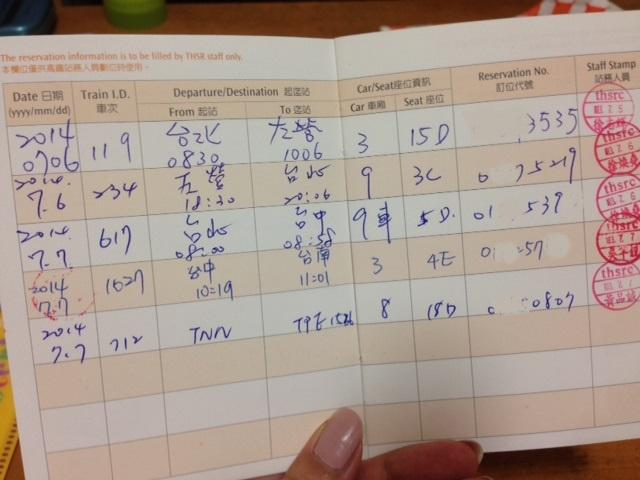 The reservation information is to be filled by THSR staff only.
本欄位僅供高鐵站務人員劃位時使用。
Date 日期 Train I.D. Departure/Destination 起迄站 Car/Seat座位資訊 Reservation No. Staff Stamp
(yyyy/mm/dd) 車次 From 起站 To 迄站 Car 車廂 Seat 座位 訂位代號 站務人員
2014 0706 119 台北 0830 左營 1006 3 15D 3535 thsrc
2014. 7.6 234 左營 18:30 台北 20:06 9 3C thsrc
2014 7.7 617 台北 08:00 台中 08:58 9車 5D. 01 539 thsrc
2014 7.7 1627 台中 10:19 台南 11:01 3 4E thsrc
2014 7.7 712 TNN TPE 8 18D 0807 thsrc